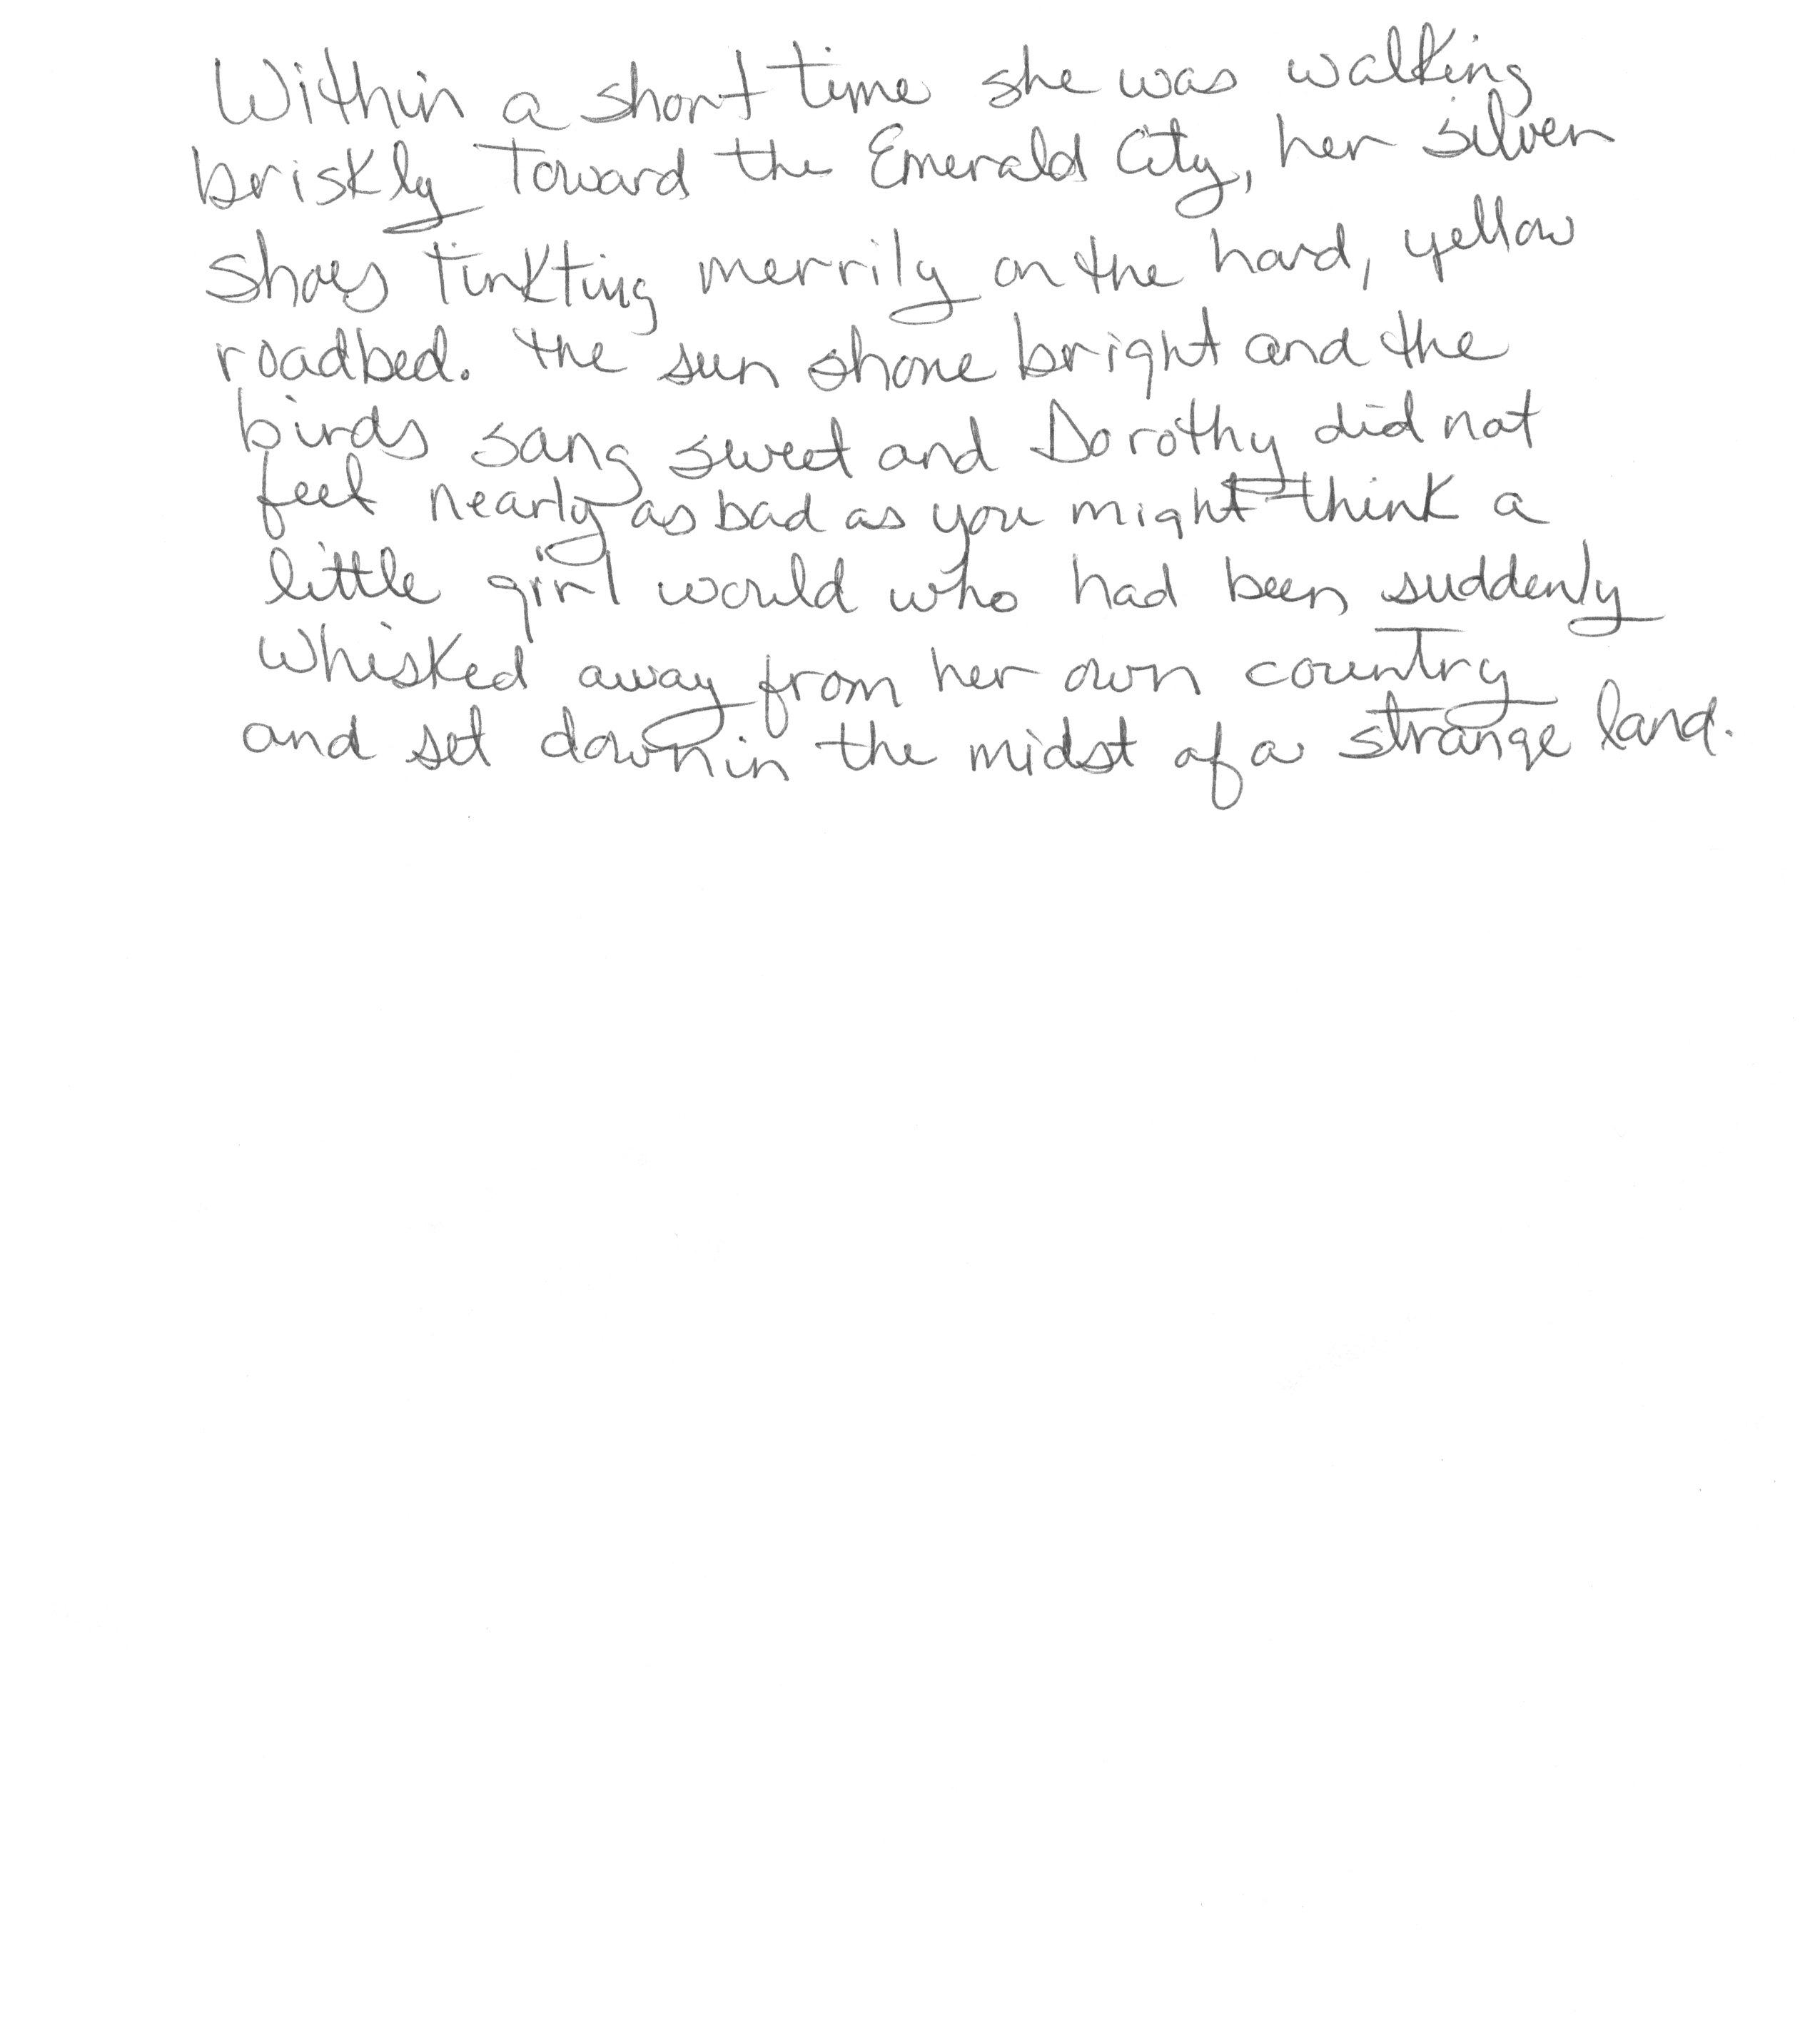 Within a short time she was walking
briskly toward the Emerald City, her silver
shoes tinkting merrily on the hard, yellow
roadbed. the sun shone bright and the
birds sang sweet and Dorothy did not
feel nearly as bad as you might think a
little girl would who had been suddenly
whisked away from her own country
and set down in the midst of a strange land.